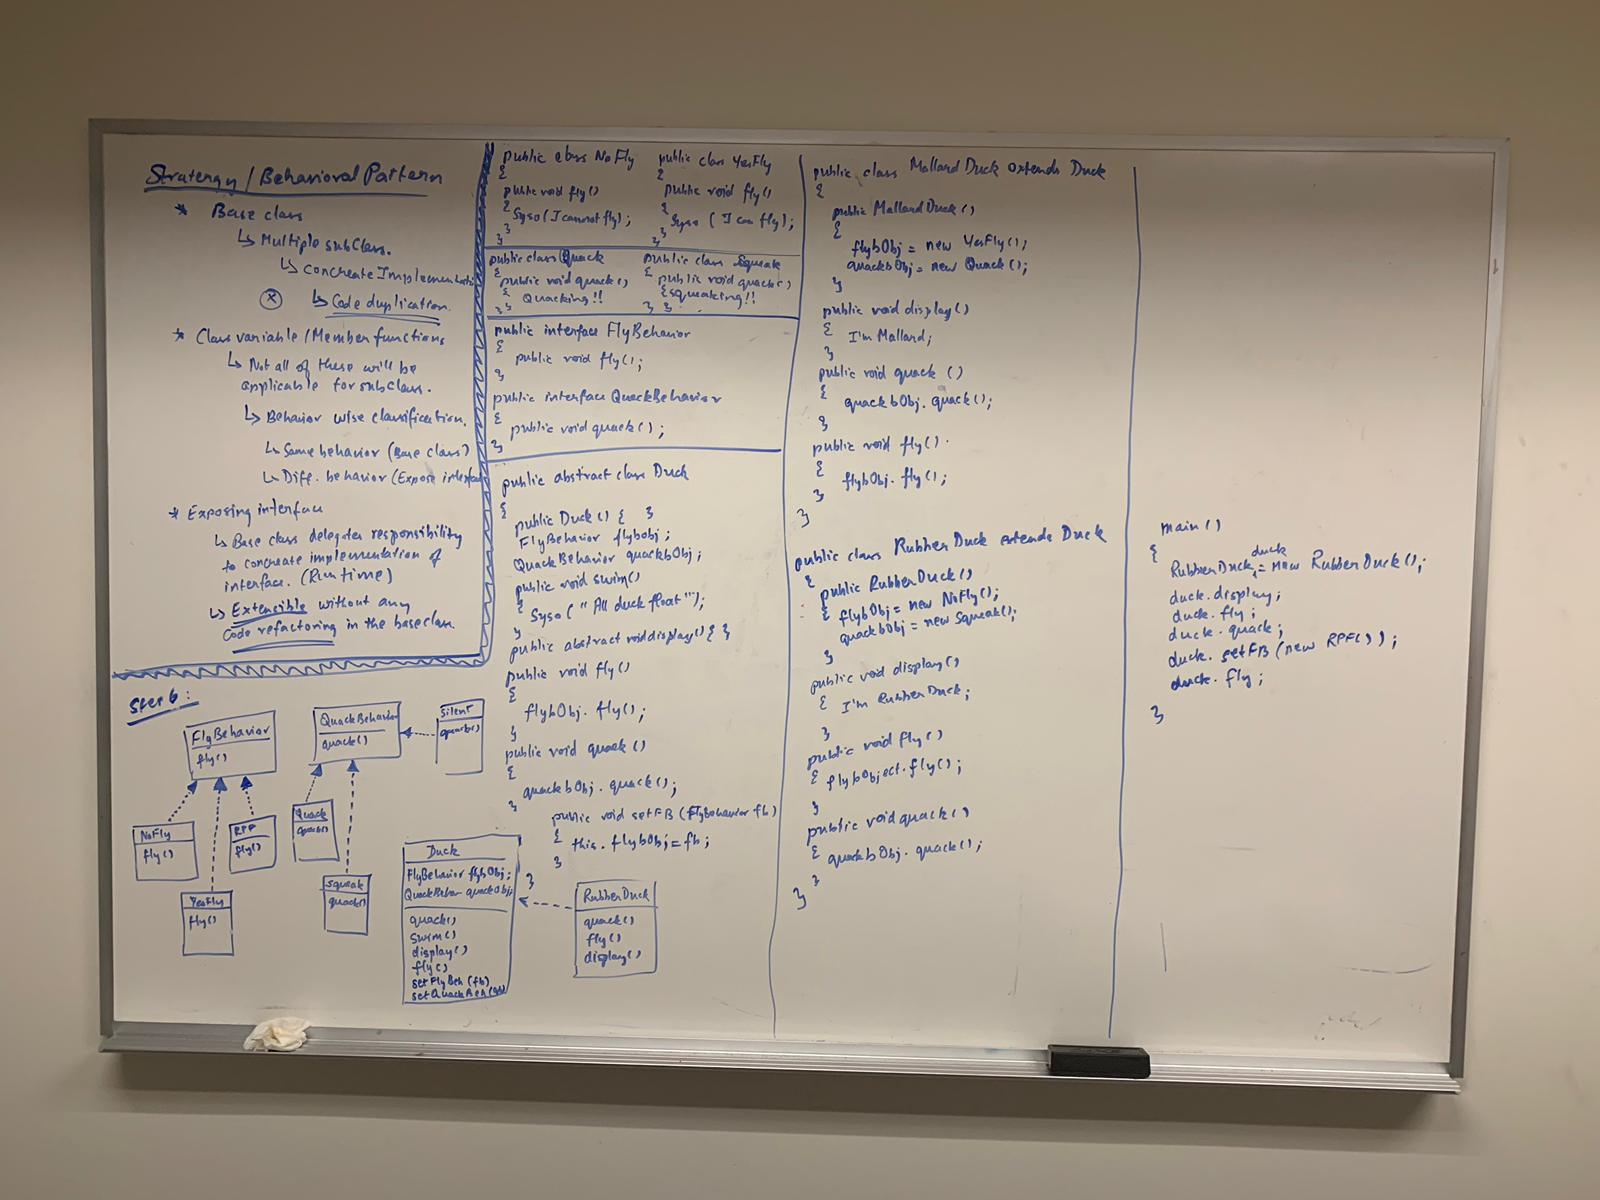 Stratergy / Behavioral Pattern
* Base class
↳ Multiple subClass.
↳ Concreate Implementation
ⓧ ↳ Code duplication.
* Class variable / Member functions
↳ Not all of these will be
applicable for subclass.
↳ Behavior wise classification.
↳ Same behavior (Base class)
↳ Diff. behavior (Expose interface
* Exposing interface
↳ Base class delegates responsibility
to concreate implementation of
interface. (Run time)
↳ Extensible without any
Code refactoring in the baseclass.
Step 6:
FlyBehavior
fly()
QuackBehavior
quack()
Silent
quack()
NoFly
fly()
YesFly
fly()
RPF
fly()
Quack
quack()
Squeak
quack()
Duck
FlyBehavior flybObj;
QuackBehav quackObj;
quack()
swim()
display()
fly()
setFlyBeh (fb)
RubberDuck
quack()
fly()
display()
public class NoFly
{
public void fly()
{
Syso (I cannot fly);
}
}
public class YesFly
{
public void fly()
{
Syso ( I can fly);
}
}
public class Quack
{
public void quack()
{ Quacking!!
} }
public class Squeak
{ public void quack()
{ squeaking!!
} }
public interface FlyBehavior
{
public void fly();
}
public interface QuackBehavior
{
public void quack();
}
public abstract class Duck
{
public Duck() { }
FlyBehavior flybobj;
QuackBehavior quackbObj;
public void swim()
{ Syso ("All duck float"");
}
public abstract void display() { }
public void fly()
{
flybObj. fly();
}
public void quack()
{
quackbObj. quack();
}
public void setFB (FlyBehavior fb)
{
this. flybObj = fb;
}
}
public class Mallard Duck extends Duck
{
public MallardDuck()
{
flybObj = new YesFly();
quackbObj = new Quack();
}
public void display()
{ I'm Mallard;
}
public void quack ()
{
quackbObj. quack();
}
public void fly()
{
flybObj. fly();
}
}
public class RubberDuck extends Duck
{
public RubberDuck()
{ flybObj = new NoFly();
quackbObj = new Squeak();
}
public void display()
{ I'm RubberDuck;
}
public void fly()
{ flybObject.fly();
}
public void quack()
{ quackbObj. quack();
}
}
main()
{
RubberDuck duck = new RubberDuck();
duck.display;
duck. fly;
duck. quack;
duck. setFB (new RPF());
duck. fly;
}